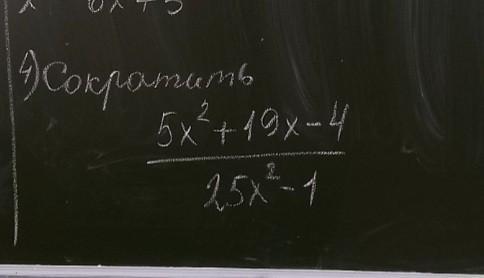 4) Сократить
5x² + 19x - 4
25x² - 1